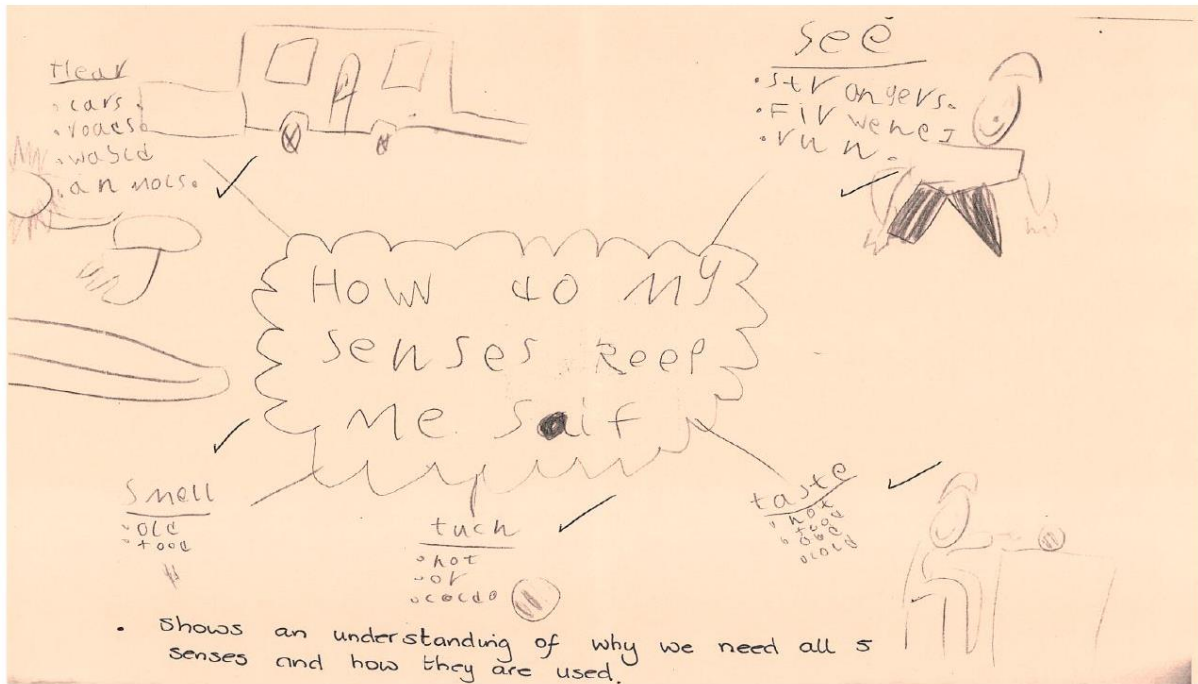 Hear
• cars.
• roads.
• an mols.
see
• strangers.
• Fir wencs
• run.
How do my
senses keep
me saif
smell
• old
• food
tuch
• hot
• or
• cocdo
taste
• hot
• food
• old
• cold
• shows an understanding of why we need all 5
senses and how they are used.